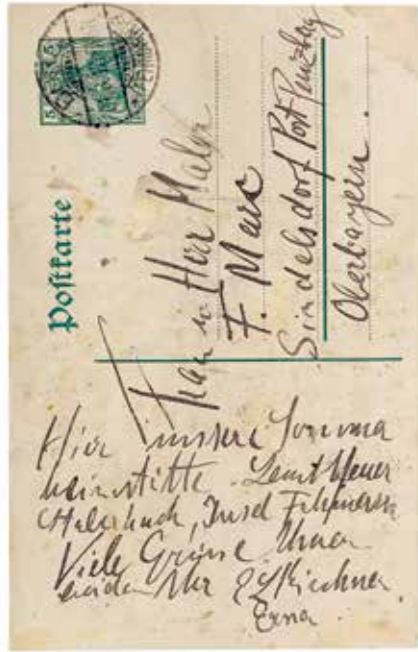 Postkarte
Frau u Herr Maler
F. Marc
Sindelsdorf Post Penzberg
Oberbayern.
Hier unsere Sommer
heimstätte Leuchtfeuer
Staberhuck, Insel Fehmarn
Viele Grüsse Ihnen
beiden Ihr E L Kirchner
Erna